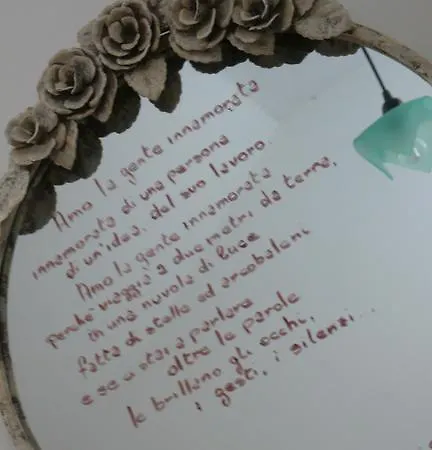 Amo la gente innamorata
innamorata di una persona
di un'idea, del suo lavoro.
Amo la gente innamorata
perché viaggia a due metri, da terra,
in una nuvola di luce
fatta di stelle ed arcobaleni
e se a stai a parlare
oltre le parole
le brillano gli occhi,
i gesti, i silenzi...